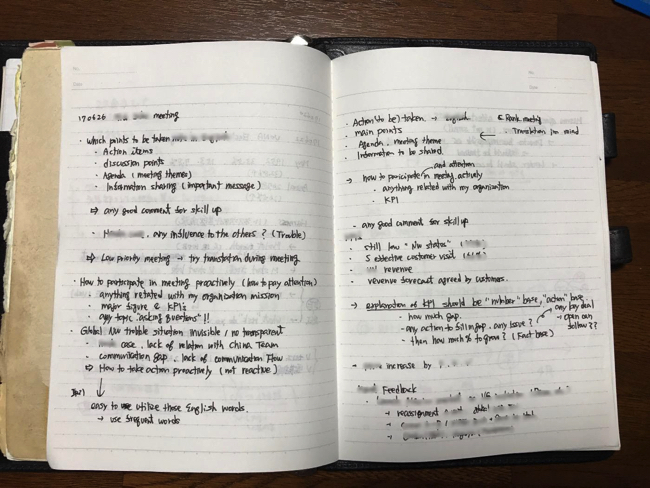 170626 meeting
・which points to be taken
・Action items
・discussion points
・Agenda (meeting themes)
・Information sharing (important message)
⇨ any good comment for skill up
・ any influence to the others? (Trouble)
⇨ Low priority meeting → try translation during meeting.
・How to participate in meeting proactively (how to pay attention)
・anything related with my organization mission
・major figure & KPIs
・any topic "asking questions"!!
Global NW trouble situation invisible / no transparent
・ case, lack of relation with China Team
・communication gap, lack of communication flow
⇨ How to take action proactively (not reactive)
easy to use utilize these English words.
→ use frequent words
・Action (to be) taken →
& Rank meeting
・main points
← Translation in mind
Agenda, meeting theme
・Information to be shared.
and attention
→ how to participate in meeting actively
・anything related with my organization
・KPI
・any good comment for skill up
・still low "NW status"
・5 effective customer visit
・ revenue
・revenue forecast agreed by customers.
⇨ explanation of KPI should be "number" base, "action" base
・how much gap.
any big deal
・any action to fill in gap, any issue?
→ open can follow??
・then how much % to grow? (Fact base)
→ increase by
Feedback
→ reassignment